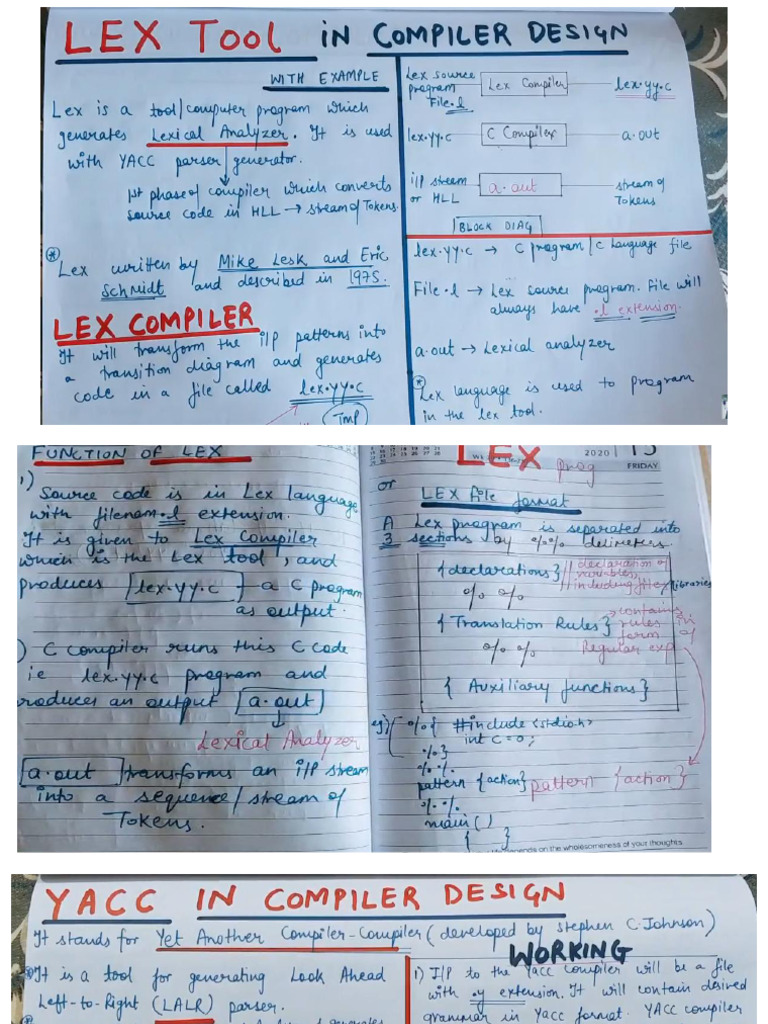 LEX TOOL IN COMPILER DESIGN
WITH EXAMPLE
Lex is a tool/computer program which
generates Lexical Analyzer. It is used
with YACC parser generator.
1st phase of compiler which converts
source code in HLL → stream of Tokens.
Lex written by Mike Lesk and Eric
Schmidt and described in 1975.
LEX COMPILER
It will transform the i/p patterns into
a transition diagram and generates
code in a file called lex.yy.c
Imp
Lex source
program
File.l
Lex Compiler
lex.yy.c
lex.yy.c
C Compiler
a.out
i/p stream
or HLL
a.out
stream of
Tokens
BLOCK DIAG
lex.yy.c → C program/C language file
File.l → Lex source program. File will
always have .l extension.
a.out → Lexical analyzer
Lex language is used to program
in the lex tool.
FUNCTION OF LEX
1)
Source code is in Lex language
with filenam.l extension.
It is given to Lex Compiler
which is the Lex tool, and
produces lex.yy.c a C program
as output.
) C compiler runs this C code
ie lex.yy.c program and
produces an output a.out
Lexical Analyzer
a.out transforms an i/p stream
into a sequence/stream of
Tokens.
2020
FRIDAY
LEX prog
or
LEX file format
A Lex program is separated into
3 sections by %% delimeters.
{declarations} // declaration of
variables,
including files/libraries
%%
{Translation Rules} → contains
rules in
form of
Regular exp
%%
{Auxiliary functions}
eg) %{ #include <stdio.h>
int c = 0;
%}
%%
pattern {action} pattern {action}
%%
main()
{ }
depends on the wholesomeness of your thoughts
YACC IN COMPILER DESIGN
It stands for Yet Another Compiler-Compiler (developed by Stephen C. Johnson)
It is a tool for generating Look Ahead
Left-to-Right (LALR) parser.
WORKING
1) I/P to the Yacc compiler will be a file
with .y extension. It will contain desired
grammar in Yacc format. YACC compiler